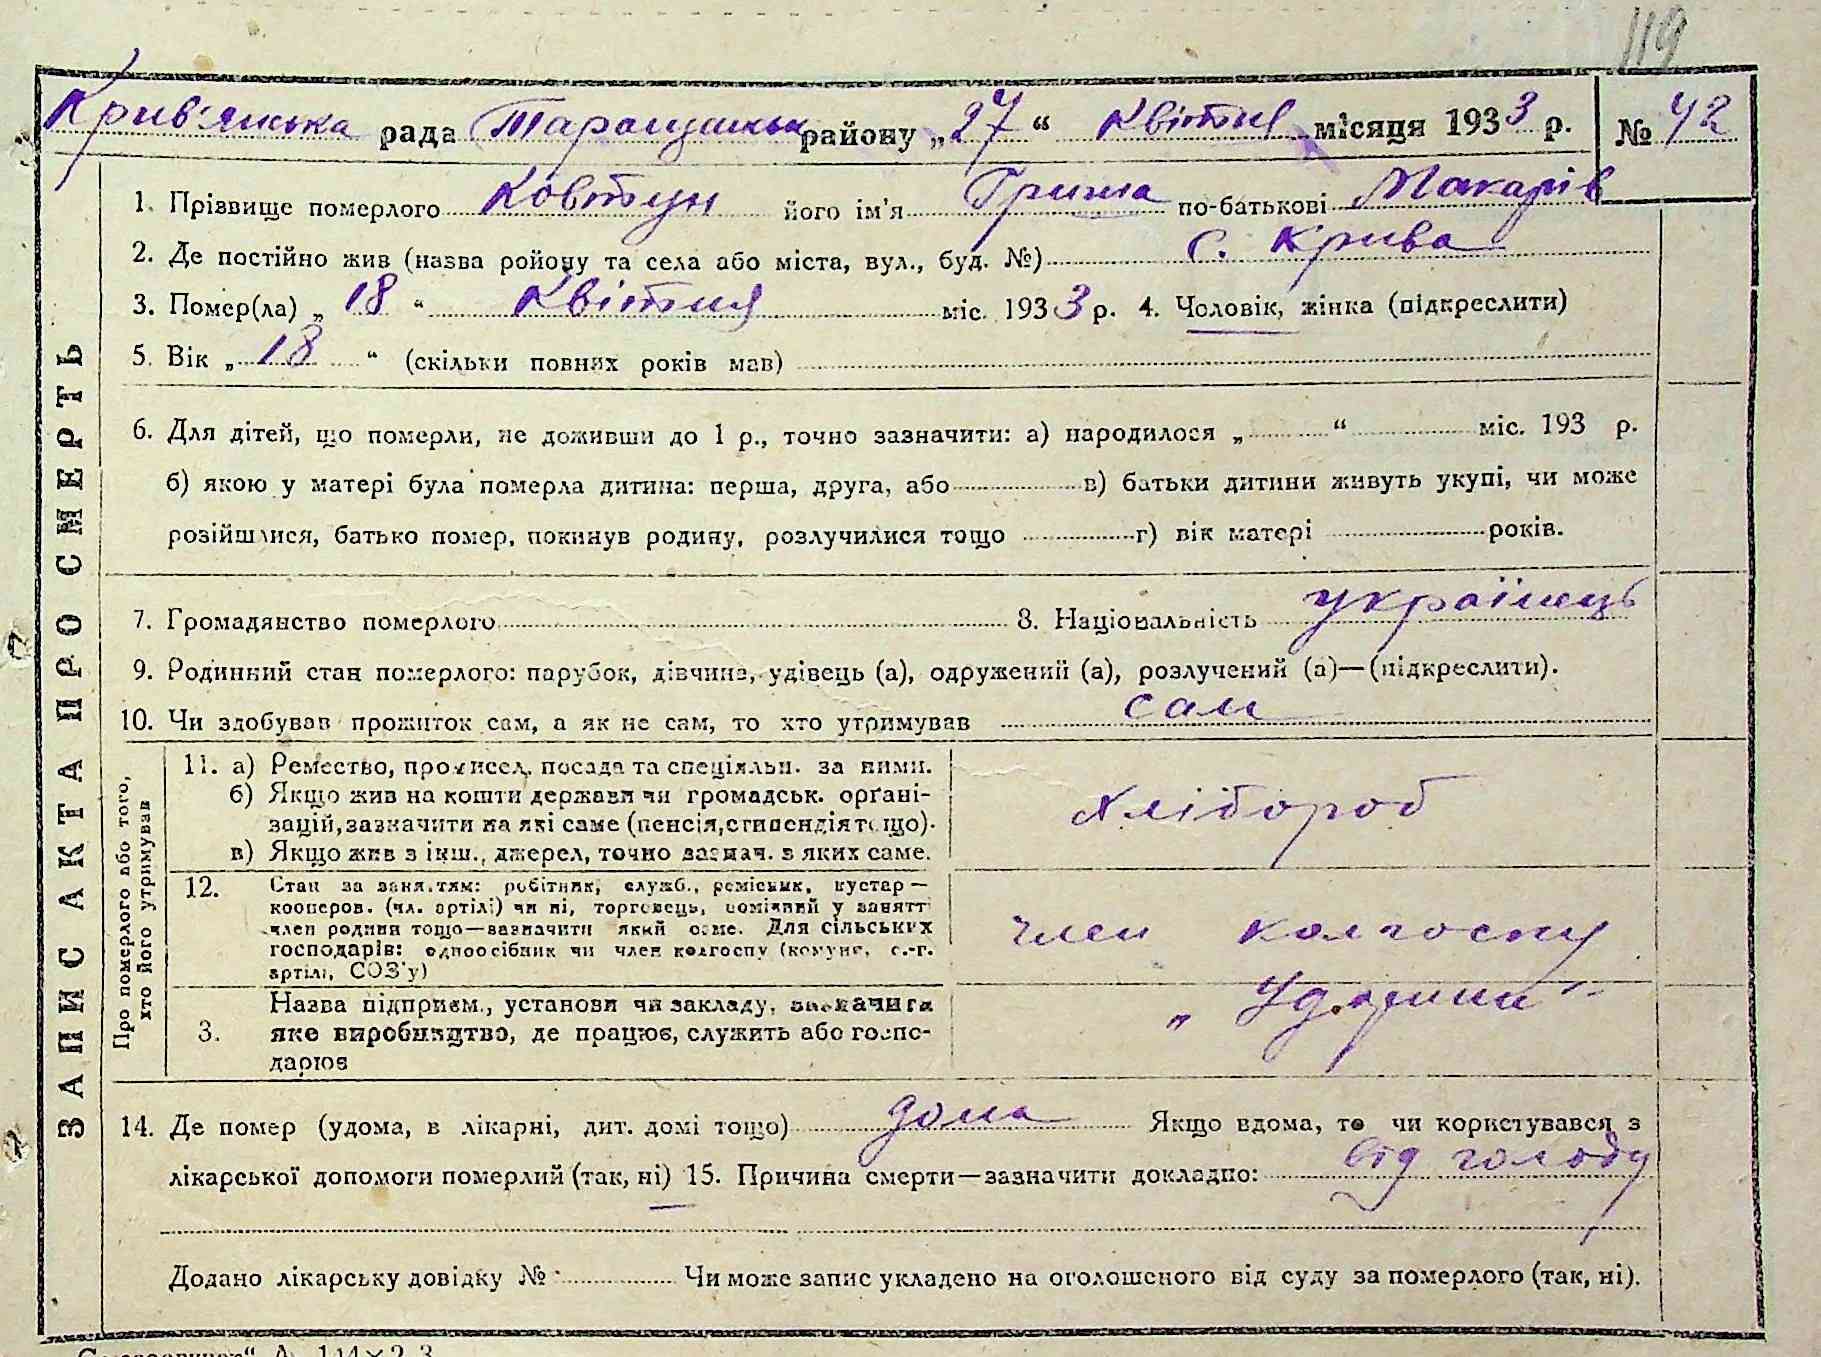 119
Крив'янська рада Таращанськ району „27“ Квітня місяця 1933 р. № 42
1. Прізвище померлого Ковтун його ім'я Гриша по-батькові Макарів
2. Де постійно жив (назва району та села або міста, вул., буд. №) с. Крива
3. Помер(ла) „18“ Квітня міс. 1933 р. 4. Чоловік, жінка (підкреслити)
5. Вік „18“ (скільки повних років мав)
6. Для дітей, що померли, не доживши до 1 р., точно зазначити: а) народилося „ “ міс. 193 р.
б) якою у матері була померла дитина: перша, друга, або в) батьки дитини живуть укупі, чи може
розійшлися, батько помер, покинув родину, розлучилися тощо г) вік матері років.
7. Громадянство померлого 8. Національність українець
9. Родинний стан померлого: парубок, дівчина, удівець (а), одружений (а), розлучений (а)—(підкреслити).
10. Чи здобував прожиток сам, а як не сам, то хто утримував сам
11. а) Ремество, промисел, посада та спеціяльн. за ними.
б) Якщо жив на кошти держави чи громадськ. орґані-
зацій, зазначити на які саме (пенсія, стипендія тощо).
в) Якщо жив з інш., джерел, точно зазнач. з яких саме.
хлібороб
12. Стан за заняттям: робітник, служб., ремісник, кустар—
кооперов. (чл. артілі) чи ні, торговець, помічний у занятті
член родини тощо—зазначити який саме. Для сільських
господарів: одноосібник чи член колгоспу (комуни, с.-г.
артілі, СОЗ'у)
член колгоспу
3. Назва підприєм., установи чи закладу, зазначити
яке виробництво, де працює, служить або госпо-
дарює
ЗАПИС АКТА ПРО СМЕРТЬ
Про померлого або того,
хто його утримував
14. Де помер (удома, в лікарні, дит. домі тощо) дома Якщо вдома, то чи користувався з
лікарської допомоги померлий (так, ні) 15. Причина смерти—зазначити докладно: від голоду
Додано лікарську довідку № Чи може запис укладено на оголошеного від суду за померлого (так, ні).